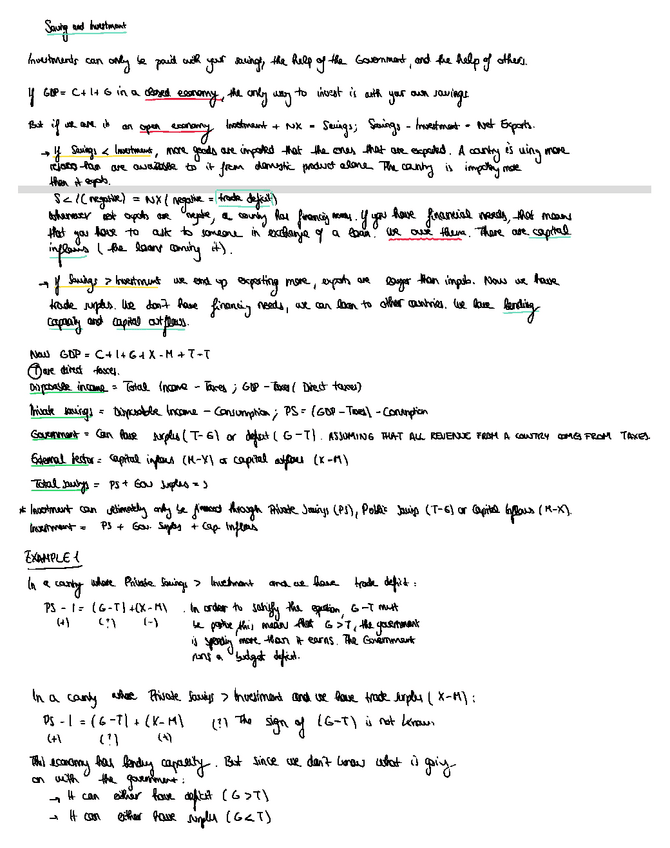 Saving and Investment
Investments can only be paid with your savings, the help of the Government, and the help of others.
If GDP = C + I + G in a closed economy, the only way to invest is with your own savings.
But if we are in an open economy Investment + NX = Savings; Savings - Investment = Net Exports.
→ If Savings < Investment, more goods are imported that the ones that are exported. A country is using more
than are available to it from domestic product alone. The country is importing more
then it exports.
S < I (negative) = NX (negative = trade deficit)
Whenever net exports are negative, a country has financing needs. If you have financial needs, that means
that you have to ask to someone in exchange of a loan. we owe them. There are capital
inflows (the loans coming it).
→ If Savings > Investment we end up exporting more, exports are larger than imports. Now we have
trade surplus. We don't have financing needs, we can loan to other countries. We have lending
capacity and capital outflows.
Now GDP = C + I + G + X - M + T - T
(T) are direct taxes.
Disposable income = Total Income - Taxes ; GDP - Taxes (Direct taxes)
Private savings = Disposable Income - Consumption ; PS = (GDP - Taxes) - Consumption
Government = Can have surplus (T-G) or deficit (G-T). ASSUMING THAT ALL REVENUE FROM A COUNTRY COMES FROM TAXES.
External Sector = Capital inflows (M-X) or capital outflows (X-M)
Total savings = PS + Gov surplus = S
* Investment can ultimately only be financed through Private Savings (PS), Public Savings (T-G) or Capital Inflows (M-X).
Investment = PS + Gov. Surplus + Cap. Inflows
EXAMPLE 1
In a country where Private Savings > Investment and we have trade deficit:
PS - I = (G-T) + (X-M) . In order to satisfy the equation, G-T must
(+) (?) (-) be positive, this means that G > T, the government
is spending more than it earns. The Government
runs a budget deficit.
In a country where Private Savings > Investment and we have trade surplus (X-M):
PS - I = (G-T) + (X-M) (?) The sign of (G-T) is not known
(+) (?) (+)
This economy has lending capacity. But since we don't know what is going
on with the government:
→ It can either have deficit (G>T)
→ It can either have surplus (G<T)